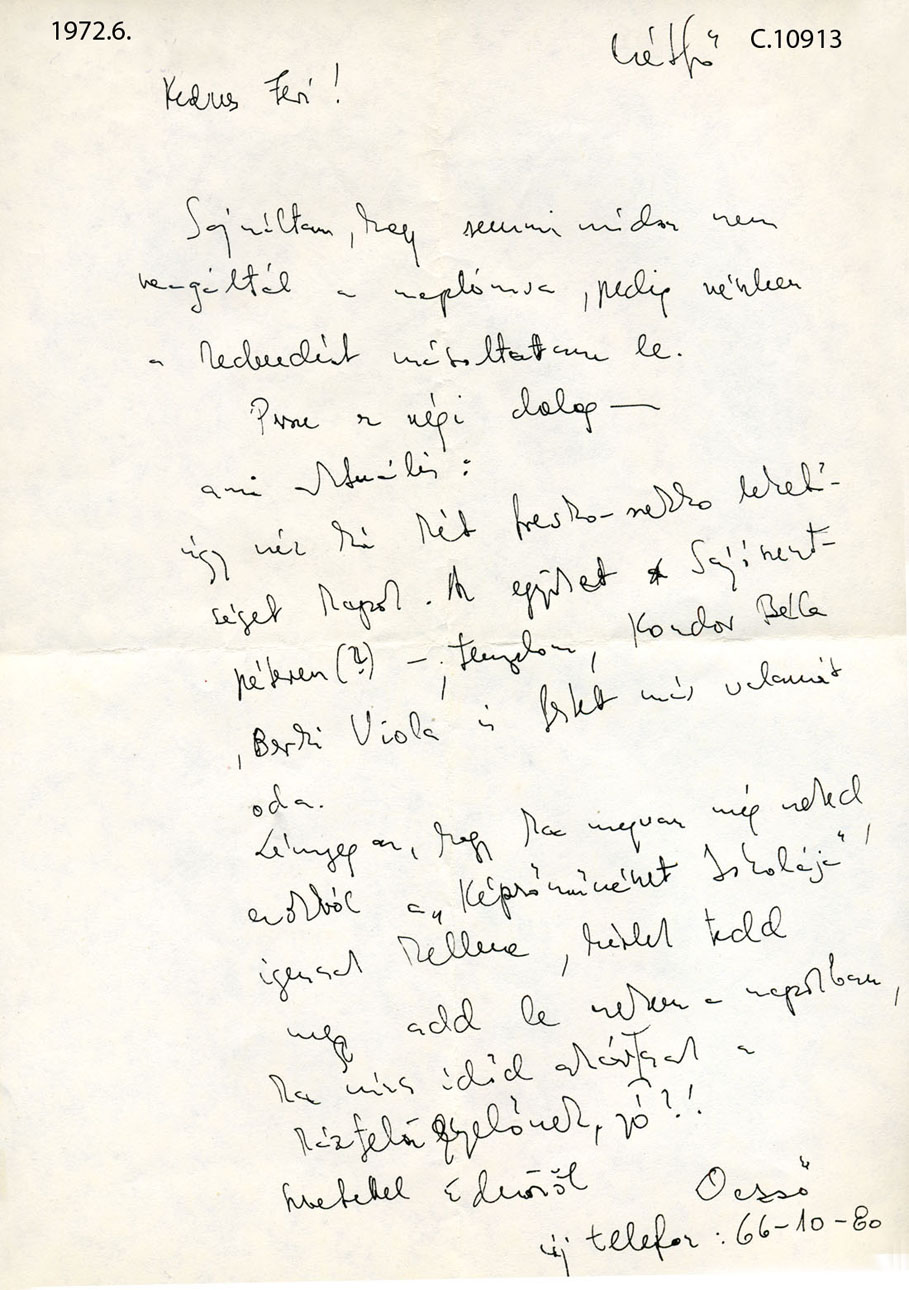 1972.6.
Hétfő C.10913
Kedves Feri!
Sajnáltam, hogy semmi módon nem
reagáltál a naplómra, pedig nékem
a kedvedért másoltattam le.
Persze ez régi dolog —
ami aktuális:
úgy néz ki két freskó-szekkó lehető-
séget kapok. Az egyiket Sajószent-
péteren(?) — templom, Kondor Béla
, Berki Viola is festett már valamit
oda.
Lényeg az, hogy ha megvan még neked
ezekből a „Képzőművészet Iskolája"
igencsak kellene, kérlek tedd
meg add le nekem a napokban,
ha nincs időd akárcsak a
házfelügyelőnek, jó?!
szeretettel Edenről Öcsi
új telefon: 66-10-80